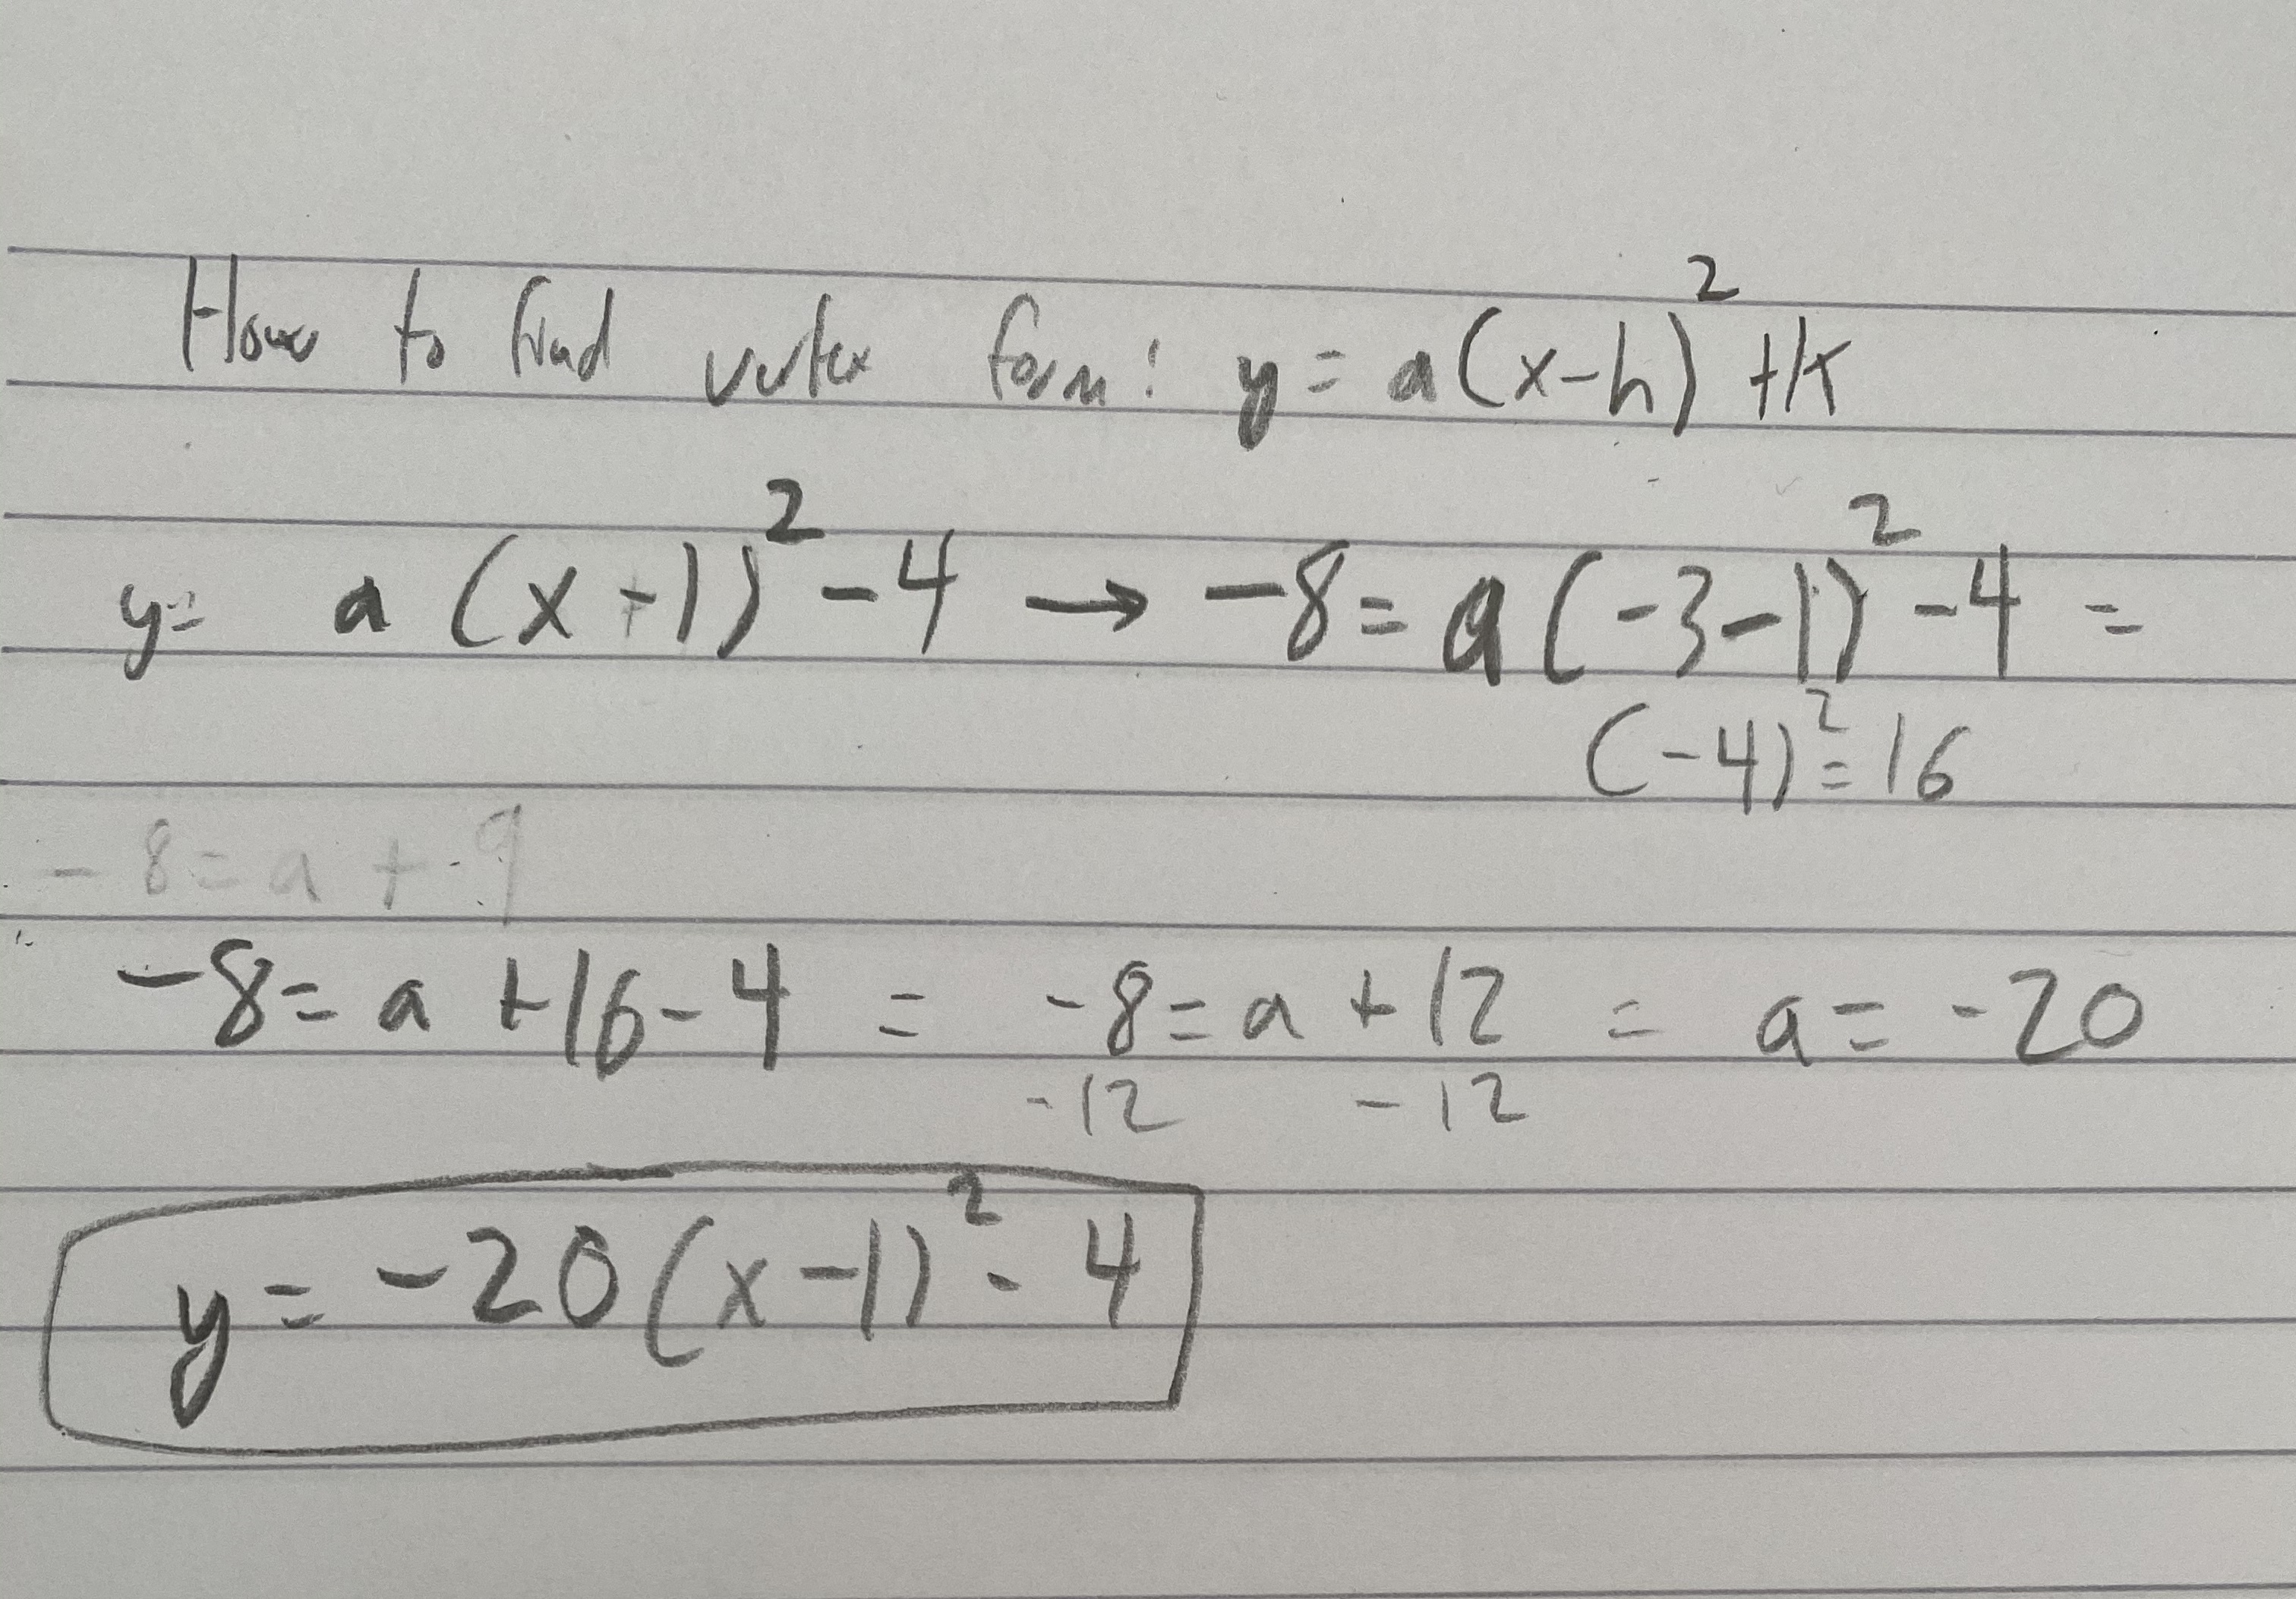 How to find vertex form: y = a(x-h)² +k
y= a (x-1)² -4 → -8 = a(-3-1)² -4 =
(-4)² = 16
-8 = a + -9
-8 = a +16 - 4 = -8 = a + 12 = a = -20
-12 -12
y = -20(x-1)² - 4